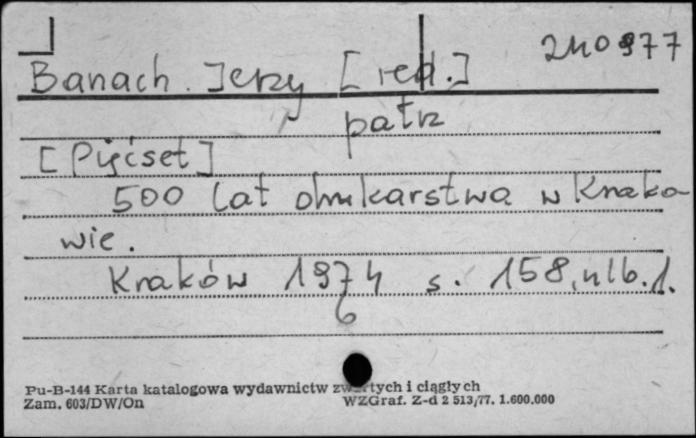 240977
Banach Jerzy [red.]
patrz
[Pięćset]
500 lat drukarstwa w Krako
wie.
Kraków 1974 s. 158, nlb. 1.
6
Pu-B-144 Karta katalogowa wydawnictw zwartych i ciągłych
Zam. 603/DW/On WZGraf. Z-d 2 513/77. 1.600.000